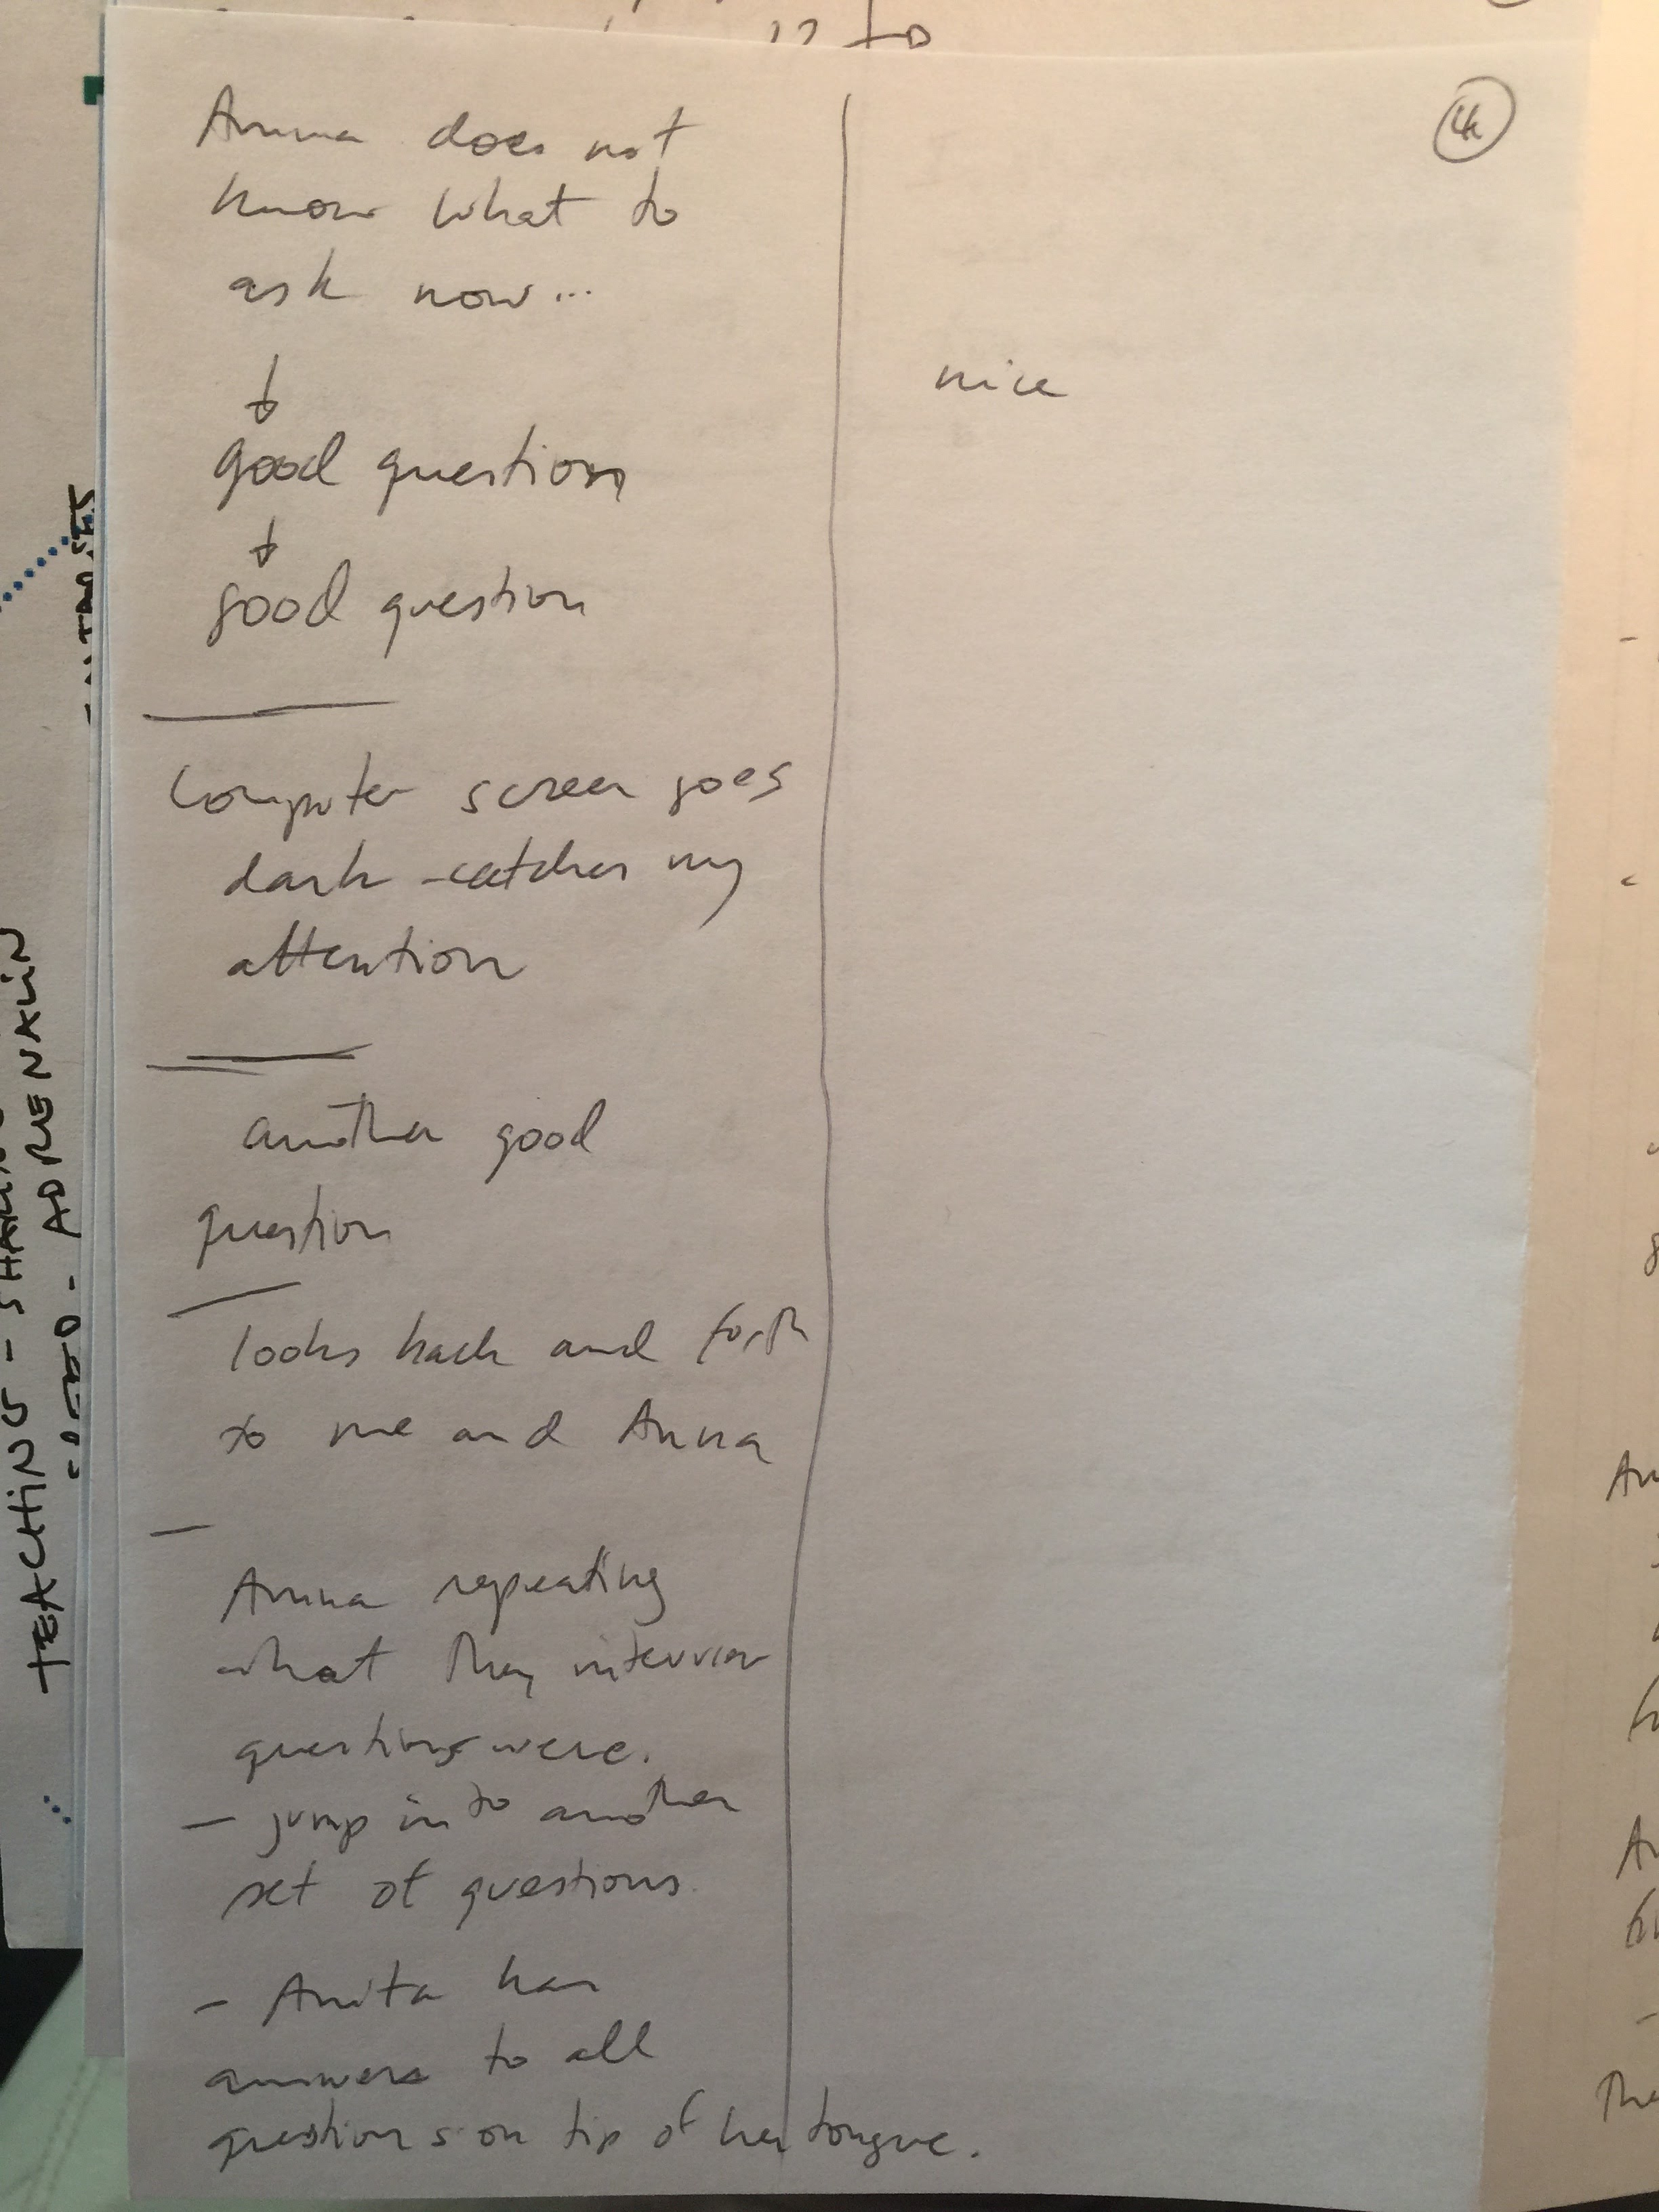 4
Anna does not
know what to
ask now...
nice
good questions
good question
Computer screen goes
dark - catches my
attention
another good
question
looks back and forth
to me and Anna
Anna repeating
what they interview
questions were.
- jump into another
set of questions.
- Anita has
answers to all
questions on tip of her tongue.
TEACHING - 
- ADRENALIN